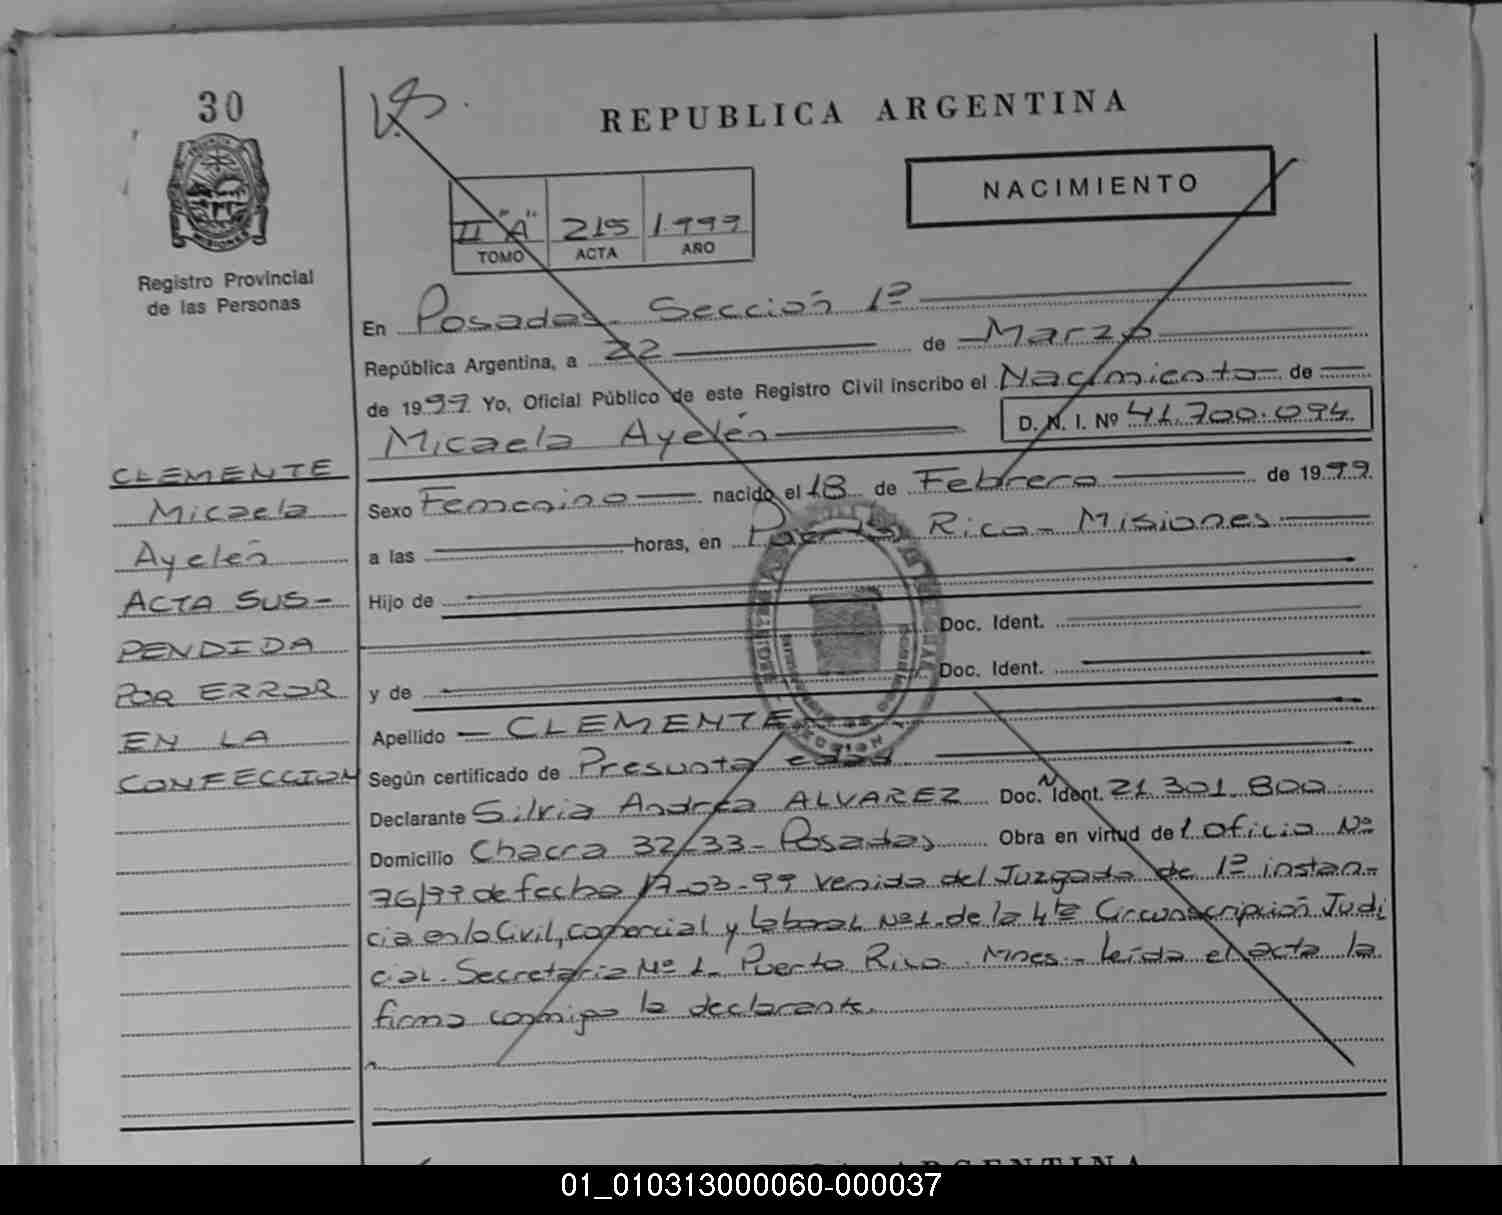 30
MISIONES
Registro Provincial
de las Personas
REPUBLICA ARGENTINA
NACIMIENTO
II "A" 215 1.999
TOMO ACTA AÑO
En Posadas Sección 1ª
República Argentina, a 22 de Marzo
de 1999 Yo, Oficial Público de este Registro Civil inscribo el Nacimiento de
Micaela Ayelén D. N. I. Nº 41.700.094
Sexo Femenino nacido el 18 de Febrero de 1999.
a las horas, en Puerto Rico - Misiones
Hijo de
Doc. Ident.
y de Doc. Ident.
Apellido CLEMENTE
Según certificado de Presunta edad
Declarante Silvia Andrea ALVAREZ Doc. Ident. 21.301.800
Domicilio Chacra 32/33 - Posadas Obra en virtud de 1 oficio Nº
76/99 de fecha 17-03-99 venido del Juzgado de 1ª instan-
cia en lo Civil, Comercial y Laboral Nº 1 de la 4ta Circunscripción Judi
cial. Secretaria Nº 1 - Puerto Rico. Mnes - leída el acta la
firma conmigo la declarante.
CLEMENTE
Micaela
Ayelén
ACTA SUS-
PENDIDA
POR ERROR
EN LA
CONFECCION
01_010313000060-000037